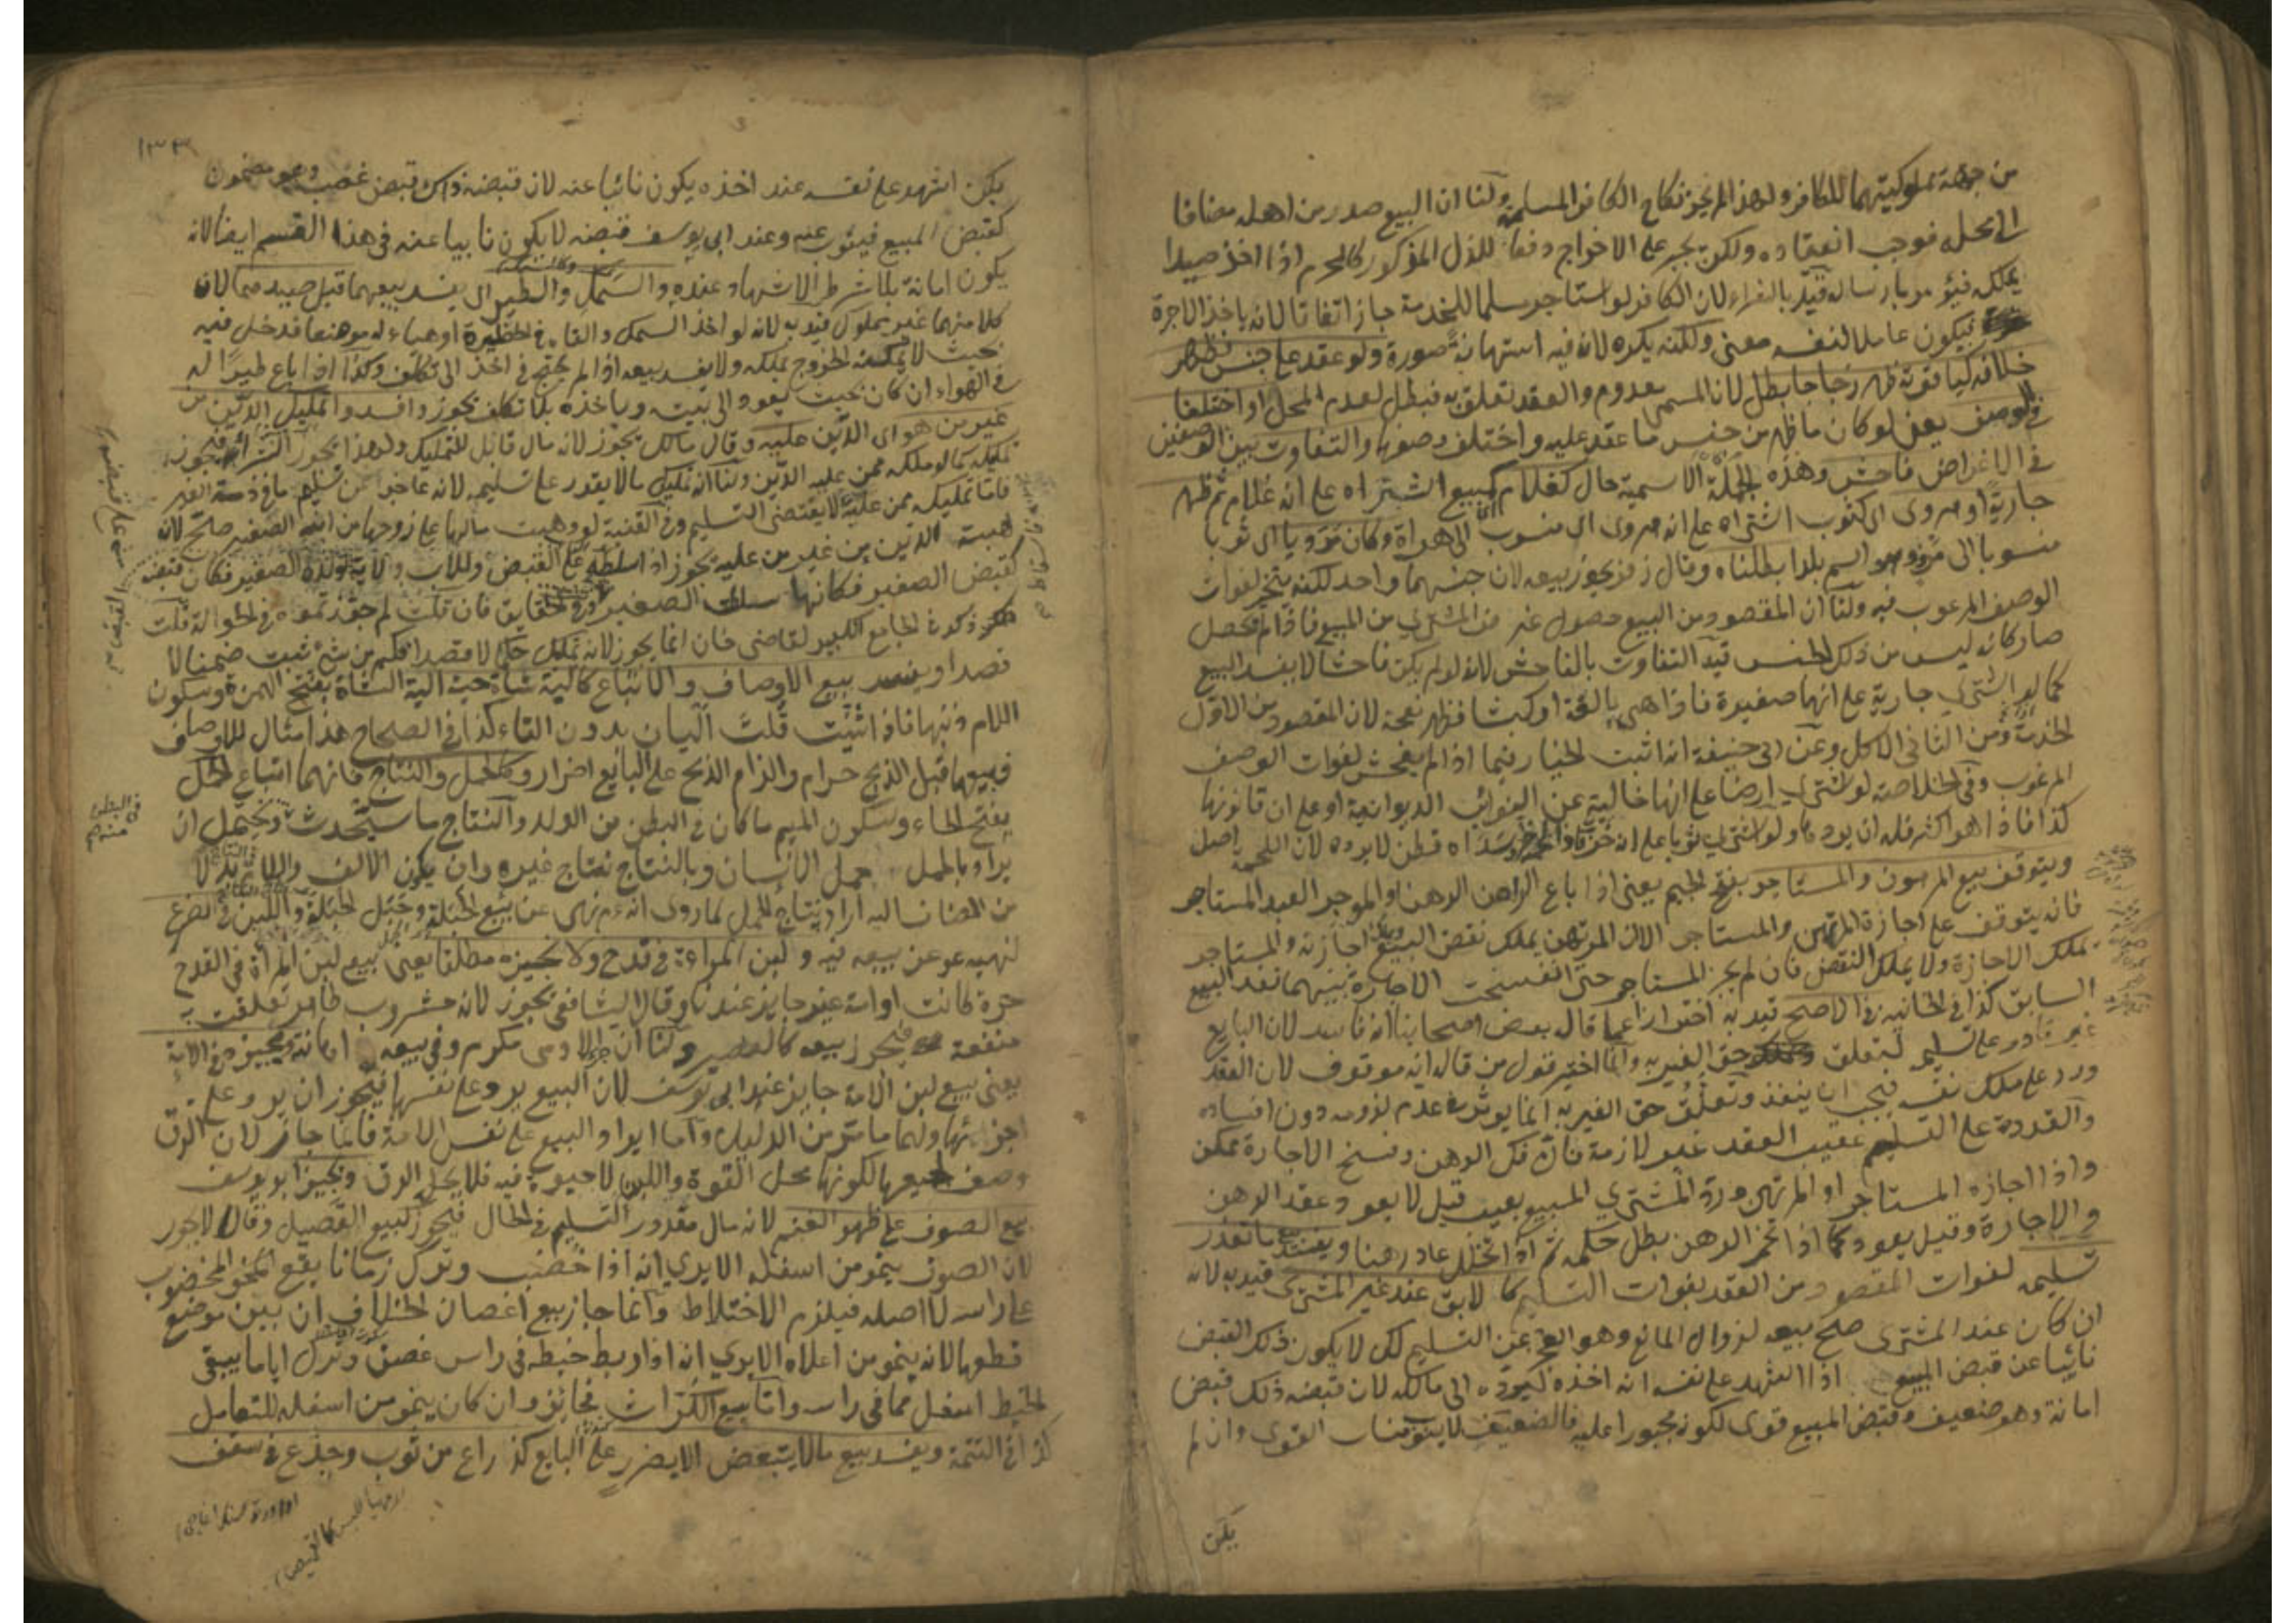 من جهة مملوكيتهما للكافر ولهذا لم يجز نكاح الكافر المسلمة ولنا ان البيع صدر من اهله مضافا
الى محله فوجب انعقاده ولكن يجبر على الاخراج دفعا للذل المذكور كالمحرم اذا اخذ صيدا
يملكه فيؤمر بارساله قيد بالشراء لان الكافر لو استاجر مسلما للخدمة جاز اتفاقا لانه ياخذ الاجرة
فيكون عاملا لنفسه معنى ولكنه يكره لانه فيه استهانة صورة ولو عقد على جنس فظهر
خلافه كياقوتة ظهر زجاجا بطل لان المسمى معدوم والعقد تعلق به فبطل لعدم المحل او اختلفا
في الوصف يعني لو كان ما ظهر من جنس ما عقد عليه واختلف وصفهما والتفاوت بين الوصفين
في الاغراض فاحش وهذه الجملة الاسمية حال كغلام كبيع اشتراه على انه غلام ثم ظهر
جارية او هروى اى كثوب اشتراه على انه هروى اى منسوب الى هراة وكان مرويا اى ثوبا
منسوبا الى مرو وهو اسم بلد ابطلناه وقال زفر يجوز بيعه لان جنسهما واحد لكنه يتخير لفوات
الوصف المرغوب فيه ولنا ان المقصود من البيع حصول غرض المشترى من المبيع فاذا لم يحصل
صار كانه ليس من ذلك الجنس قيد التفاوت بالفاحش لانه لو لم يكن فاحشا لا يفسد البيع
كما لو اشترى جارية على انها صغيرة فاذا هى بالغة او كبشا فظهر نعجة لان المقصود من الاول
الخدمة ومن الثانى الاكل وعن ابى حنيفة انه اثبت الخيار فيما اذا لم يفحش لفوات الوصف
المرغوب وفى الخلاصة لو اشترى ارضا على انها خالية عن النوائب الديوانية او على ان قانونها
كذا فاذا هو اكثر فله ان يرده ولو اشترى ثوبا على انه خز فاذا لحمته خز وسداه قطن لا يرده لان اللحمة اصل
ويتوقف بيع المرهون والمستاجر بفتح الجيم يعنى اذا باع الراهن الرهن او الموجر العبد المستاجر
فانه يتوقف على اجازة المرتهن والمستاجر الا ان المرتهن يملك نقض البيع واجازته والمستاجر
يملك الاجازة ولا يملك النقض فان لم يجز المستاجر حتى انفسخت الاجارة بينهما نفذ البيع
السابق كذا فى الخانية فى الاصح قيد به احترازا عما قال بعض اصحابنا انه فاسد لان البايع
غير قادر على تسليمه لتعلق حق الغير به وانما اختير قول من قال انه موقوف لان العقد
ورد على ملك نفسه فيجب ان ينفذ وتعلق حق الغير به انما يوثر فى عدم لزومه دون افساده
والقدرة على التسليم عقيب العقد غير لازمة فان فك الرهن وفسخ الاجارة ممكن
واذا اجازه المستاجر او المرتهن ورد المشترى المبيع بعيب قيل لا يعود عقد الرهن
والاجارة وقيل يعود كما اذا تخمر الرهن بطل حكمه ثم اذا تخلل عاد رهنا ويفسد بيع ما تعذر
تسليمه لفوات المقصود من العقد بفوات التسليم كالابق عند غير المشترى قيد به لانه
ان كان عند المشترى صح بيعه لزوال المانع وهو العجز عن التسليم لكن لا يكون ذلك القبض
نائبا عن قبض المبيع اذا اشهد على نفسه انه اخذه ليرده الى مالكه لان قبضه ذلك قبض
امانة وهو ضعيف وقبض المبيع قوى لكونه مجبورا عليه فالضعيف لا ينوب مناب القوى وان لم
يكن
١٣٣
يكن اشهد على نفسه عند اخذه يكون نائبا عنه لان قبضه ذاك قبض غصب وهو مضمون
كقبض المبيع فينوب عنه وعند ابى يوسف قبضه لا يكون نائبا عنه فى هذا القسم ايضا لانه
يكون امانة بلا شرط الاشهاد عنده والسمك والطير اى يفسد بيعهما قبل صيدهما لان
كلا منهما غير مملوك قيد به لانه لو اخذ السمك والقاه فى الحظيرة او هياء له موضعا فدخل فيه
بحيث لا يمكنه الخروج يملكه ولا يفسد بيعه اذا لم يحتج فى اخذه الى تكلف وكذا اذا باع طيرا له
فى الهواء ان كان بحيث يعود الى بيته وياخذه بلا تكلف يجوز وافسدوا تمليك الدين من
غير من هو اى الدين عليه وقال مالك يجوز لانه مال قابل للتمليك ولهذا يجوز الشراء به فيجوز
تمليكه كما لو ملكه ممن عليه الدين ولنا انه تمليك ما لا يقدر على تسليمه لانه عاجز عن تسليم ما فى ذمة الغير
فاما تمليكه ممن عليه لا يقتضى التسليم وفى القنية لو وهبت مالها على زوجها من ابنه الصغير صح لان
هبة الدين من غير من عليه يجوز اذا سلطه على القبض وللاب ولاية لولده الصغير فكان قبضه
كقبض الصغير فكانها سلطت الصغير وفى الحقايق فان قلت لم جوزتموه فى الحوالة قلت
هكذا ذكره فى الجامع الكبير لقاضى خان انما يجوز لانه تمليك حكما لا قصدا فكم من شئ ثبت ضمنا لا
قصدا ويفسد بيع الاوصاف والاتباع كالية شاة حية الية الشاة بفتح الهمزة وسكون
اللام ذنبها فاذا ثنيت قلت اليان بدون التاء كذا فى الصحاح هذا مثال للاوصاف
فبيعها قبل الذبح حرام والزام الذبح على البايع اضرار وكالحمل والنتاج فانهما اتباع الحمل
بفتح الحاء وسكون الميم ما كان فى البطن من الولد والنتاج ما سيحدث ويحتمل ان
يراد بالحمل حمل الانسان وبالنتاج نتاج غيره وان يكون الالف واللام بدلا
من المضاف اليه اراد نتاج الحمل لما روى انه عم نهى عن بيع الحبلة وحبل الحبلة واللبن فى الضرع
لنهيه عم عن بيعه فيه ولبن المراءة فى قدح ولا نجيزه مطلقا يعنى بيع لبن المراة فى القدح
حرة كانت او امة غير جايز عندنا وقال الشافعى يجوز لانه مشروب طاهر تعلقت به
منفعة فيجوز بيعه كالعصير ولنا ان جزء الادمى مكرم وفى بيعه اهانة ويجيزه فى الامة
يعنى بيع لبن الامة جايز عند ابى يوسف لان البيع يرد على نفسها فيجوز ان يرد على
اجزائها ولهما ما مر من الدليل واما ايراد البيع على نفس الامة فانما جاز لان الرق
وصف لجميعها لكونها محل القوة واللبن لا حيوة فيه فلا يحل الرق ويجيز ابو يوسف
بيع الصوف على ظهر الغنم لانه مال مقدور التسليم فى الحال فيجوز كبيع القصيل وقالا لا يجوز
لان الصوف ينمو من اسفله الا يرى انه اذا خضب وترك زمانا يقع المخضوب
على راسه لا اصله فيلزم الاختلاط وانما جاز بيع اغصان الخلاف ان بين موضع
قطعها لانه ينمو من اعلاه الا يرى انه اذا ربط خيط فى راس غصن وترك اياما يبقى
الخيط اسفل مما فى راسه واما بيع الكراث فجائز وان كان ينمو من اسفله للتعامل
كذا فى التتمة ويفسد بيع ما لا يتبعض الا بضرر على البايع كذراع من ثوب وجذع فى سقف